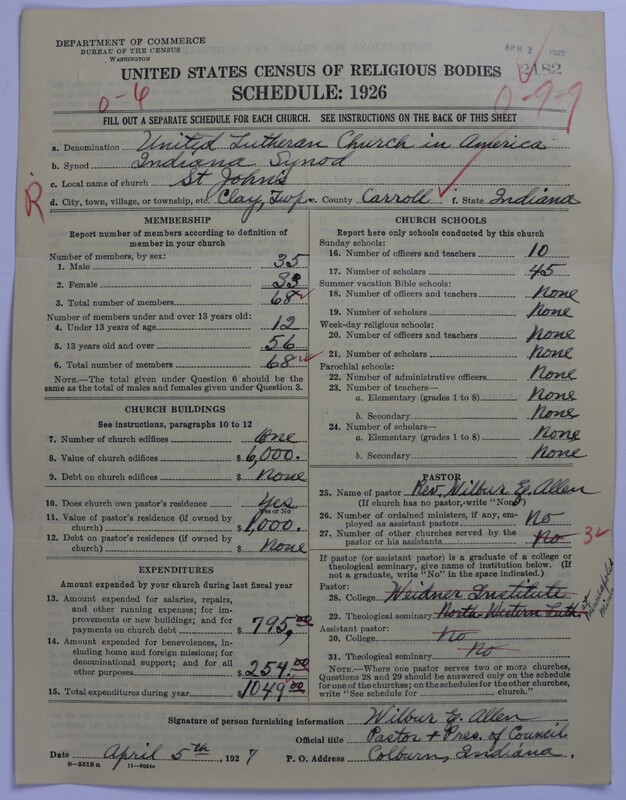 DEPARTMENT OF COMMERCE
BUREAU OF THE CENSUS
WASHINGTON
APR 7 1927
2182
UNITED STATES CENSUS OF RELIGIOUS BODIES
SCHEDULE: 1926
0-6
0-9-9
FILL OUT A SEPARATE SCHEDULE FOR EACH CHURCH. SEE INSTRUCTIONS ON THE BACK OF THIS SHEET
a. Denomination United Lutheran Church in America
b. Synod Indiana Synod
c. Local name of church St Johns
d. City, town, village, or township, etc. Clay, Twp. e. County Carroll f. State Indiana
R
MEMBERSHIP
Report number of members according to definition of member in your church
Number of members, by sex:
1. Male 35
2. Female 33
3. Total number of members 68
Number of members under and over 13 years old:
4. Under 13 years of age 12
5. 13 years old and over 56
6. Total number of members 68
NOTE.—The total given under Question 6 should be the same as the total of males and females given under Question 3.
CHURCH BUILDINGS
See instructions, paragraphs 10 to 12
7. Number of church edifices One
8. Value of church edifices $ 6,000.
9. Debt on church edifices $ None
10. Does church own pastor's residence Yes
Yes or No
11. Value of pastor's residence (if owned by church) $ 1,000.
12. Debt on pastor's residence (if owned by church) $ None
EXPENDITURES
Amount expended by your church during last fiscal year
13. Amount expended for salaries, repairs, and other running expenses; for improvements or new buildings; and for payments on church debt $ 795.00
14. Amount expended for benevolences, including home and foreign missions; for denominational support; and for all other purposes $ 254.00
15. Total expenditures during year $ 1049.00
CHURCH SCHOOLS
Report here only schools conducted by this church
Sunday schools:
16. Number of officers and teachers 10
17. Number of scholars 45
Summer vacation Bible schools:
18. Number of officers and teachers None
19. Number of scholars None
Week-day religious schools:
20. Number of officers and teachers None
21. Number of scholars None
Parochial schools:
22. Number of administrative officers None
23. Number of teachers—
a. Elementary (grades 1 to 8) None
b. Secondary None
24. Number of scholars—
a. Elementary (grades 1 to 8) None
b. Secondary None
PASTOR
25. Name of pastor Rev. Wilbur E. Allen
(If church has no pastor, write "None")
26. Number of ordained ministers, if any, employed as assistant pastors No
27. Number of other churches served by the pastor or his assistants No 3
If pastor (or assistant pastor) is a graduate of a college or theological seminary, give name of institution below. (If not a graduate, write "No" in the space indicated.)
Pastor:
28. College Weidner Institute
29. Theological seminary North Western Luth. at Minneapolis Minn
Assistant pastor:
30. College No
31. Theological seminary No
NOTE.—Where one pastor serves two or more churches, Questions 28 and 29 should be answered only on the schedule for one of the churches; on the schedules for the other churches, write "See schedule for church."
Signature of person furnishing information Wilbur E. Allen
Official title Pastor + Pres. of Council
Date April 5th, 1927 P. O. Address Colburn, Indiana.